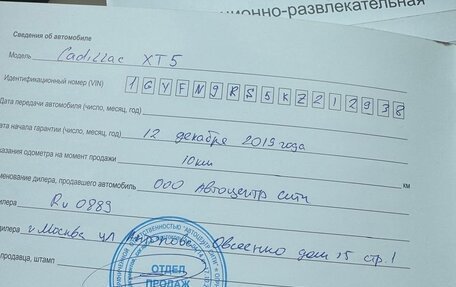 ционно-развлекательная
Сведения об автомобиле
Модель Cadillac XT5
Идентификационный номер (VIN) 1GYFN9RS5KZ212938
Дата передачи автомобиля (число, месяц, год)
дата начала гарантии (число, месяц, год) 12 декабря 2019 года
казания одометра на момент продажи 10км км
менование дилера, продавшего автомобиль ООО Автоцентр Сити
дилера Ru 0889
дилера г. Москва ул Антонова Овсеенко дом 15 стр. 1
продавца, штамп
ОТДЕЛ
ПРОДАЖ